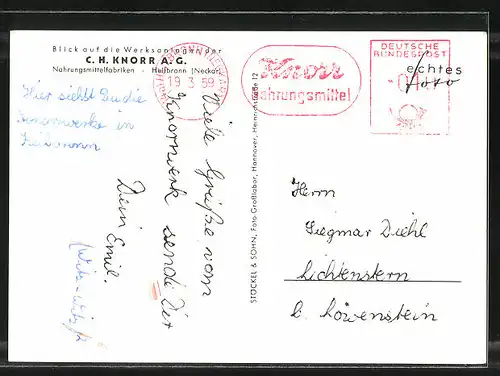 Blick auf die Werksanlagen der
C. H. KNORR A. G.
Nahrungsmittelfabriken - Heilbronn (Neckar)
Hier siehst Du die
Knorrwerke in
Heilbronn
Viele Grüße vom
Knorrwerk sendet Dir
Dein Emil.
19 3 59
Knorr
Nahrungsmittel
DEUTSCHE
BUNDESPOST
echtes
Foto
STÖCKEL & SOHN, Foto Großlabor, Hannover, Heinrichstraße 12
Herrn
Siegmar Diehl
Lichtenstern
b. Löwenstein